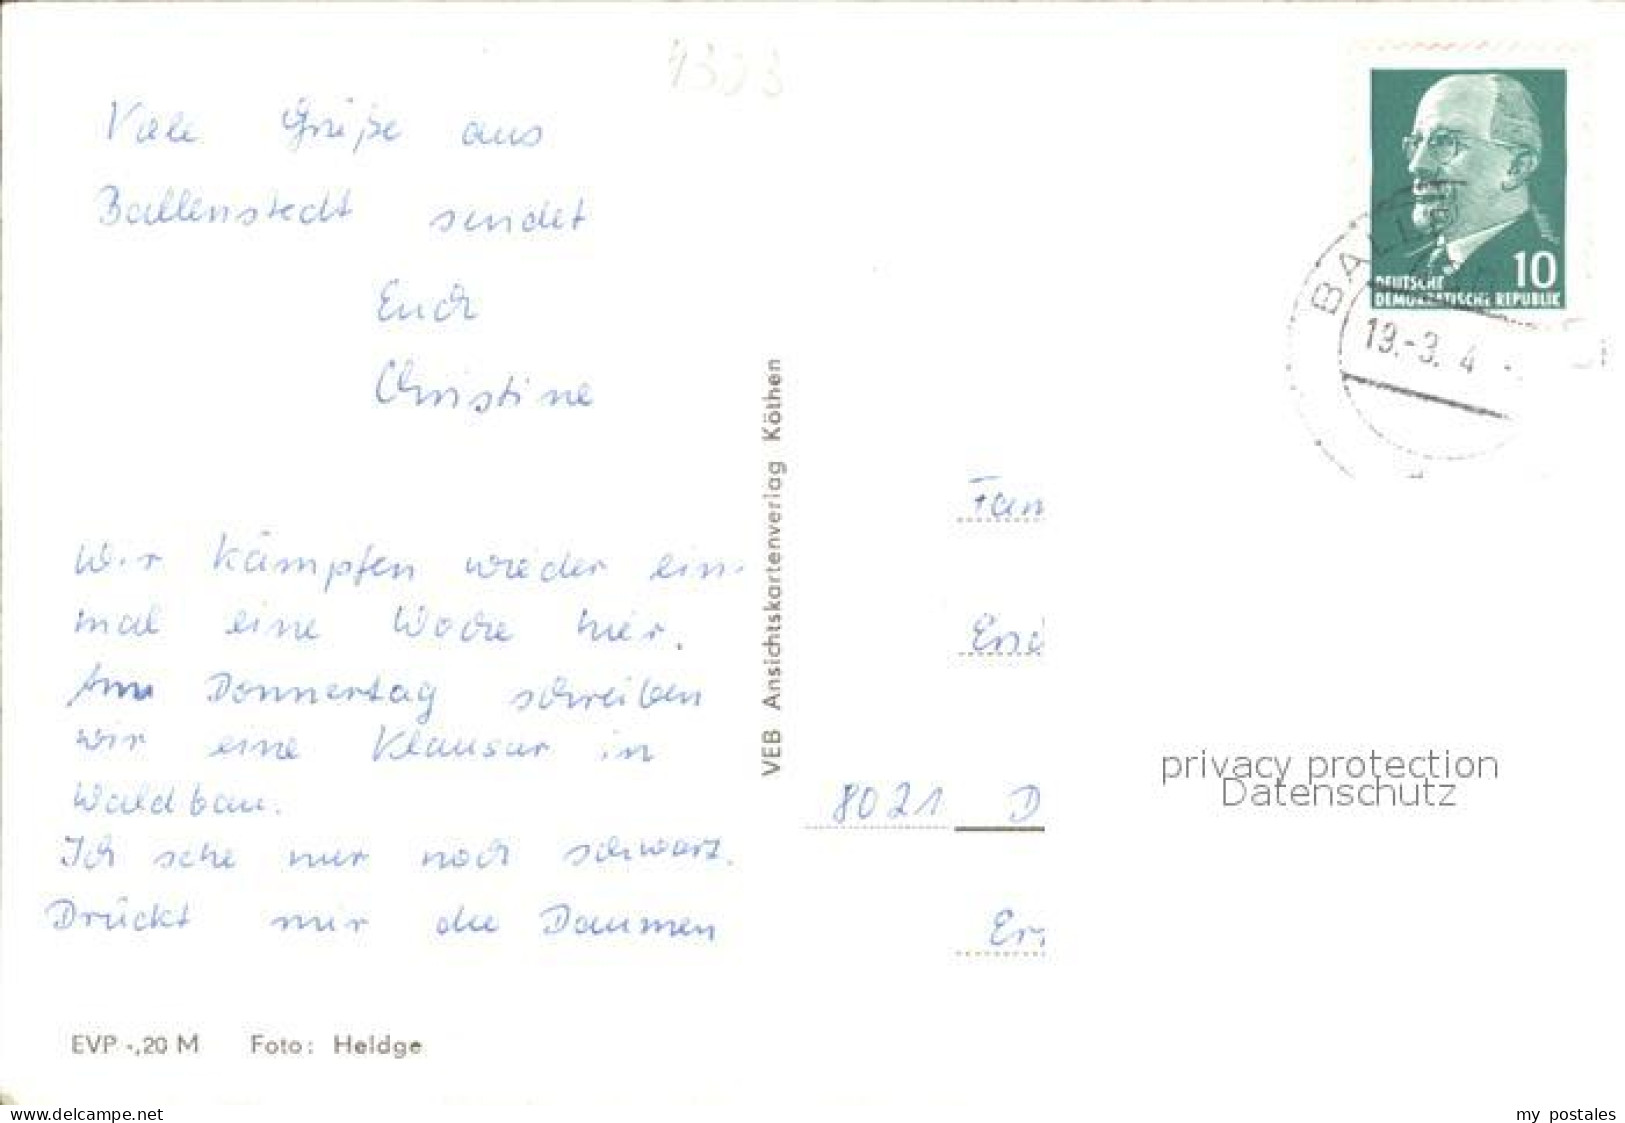 4303
Viele Grüße aus
Ballenstedt sendet
Euch
Christine
Wir kämpfen wieder ein-
mal eine Woche hier.
Am Donnerstag schreiben
wir eine Klausur in
Waldbau.
Ich sehe nur noch schwarz.
Drückt mir die Daumen
EVP -,20 M Foto: Heldge
VEB Ansichtskartenverlag Köthen
10
DEUTSCHE
DEMOKRATISCHE REPUBLIK
BALLEN
19.-3.
Fam
8021 D
privacy protection
Datenschutz
www.delcampe.net
my_postales